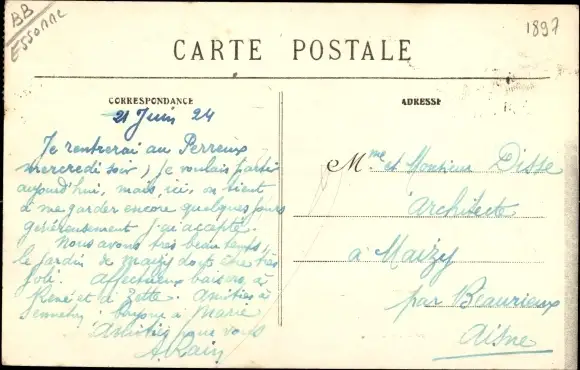 BB
ESSONNE
1897
CARTE POSTALE
CORRESPONDANCE
ADRESSE
21 Juin 24
Je rentrerai au Perreux
mercredi soir, je voulais partir
aujourd'hui, mais, ici, on tient
à me garder encore quelques jours
généreusement j'ai accepté.
Nous avons très beau temps,
le jardin de Maizy doit être très
joli. Affectueux baisers, à
René et à Zette. Amitiés à
bonjour à Marie
Amitiés pour vous
A. Rain
Mme et Monsieur Disse
Architecte
à Maizy
par Beaurieux
Aisne